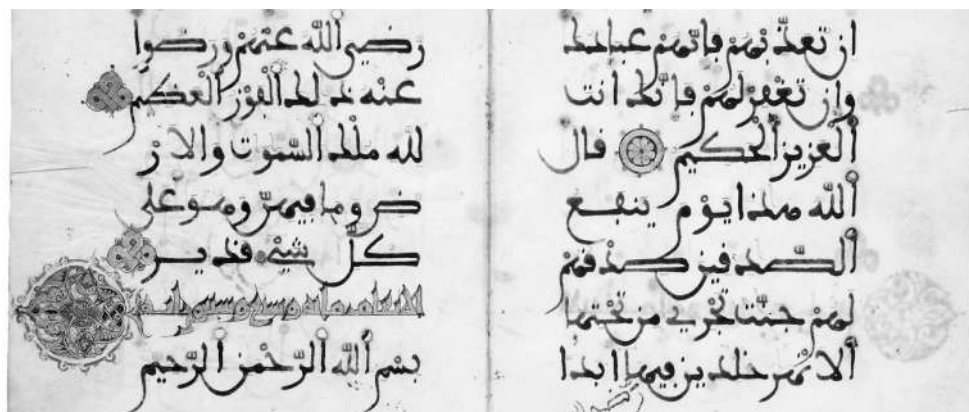 إِن تُعَذِّبْهُمْ فَإِنَّهُمْ عِبَادُكَ
وَإِن تَغْفِرْ لَهُمْ فَإِنَّكَ أَنتَ
ٱلْعَزِيزُ ٱلْحَكِيمُ قَالَ
ٱللَّهُ هَٰذَا يَوْمُ يَنفَعُ
ٱلصَّٰدِقِينَ صِدْقُهُمْ
لَهُمْ جَنَّٰتٌ تَجْرِي مِن تَحْتِهَا
ٱلْأَنْهَٰرُ خَٰلِدِينَ فِيهَا أَبَدًا
رَّضِيَ ٱللَّهُ عَنْهُمْ وَرَضُوا
عَنْهُ ذَٰلِكَ ٱلْفَوْزُ ٱلْعَظِيمُ
لِلَّهِ مُلْكُ ٱلسَّمَٰوَٰتِ وَٱلْأَرْ
ضِ وَمَا فِيهِنَّ وَهُوَ عَلَىٰ
كُلِّ شَيْءٍ قَدِيرٌ
الانعام مائة وسبع وستون اية
بِسْمِ ٱللَّهِ ٱلرَّحْمَٰنِ ٱلرَّحِيمِ